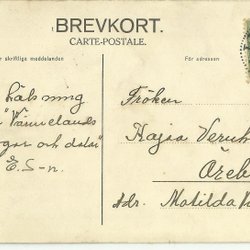 BREVKORT.
CARTE-POSTALE.
r skriftliga meddelanden
För adressen
Hälsning
Värmelands
och dalar
E. S-n.
Fröken
Hajsa
Öreb
Adr. Matilda